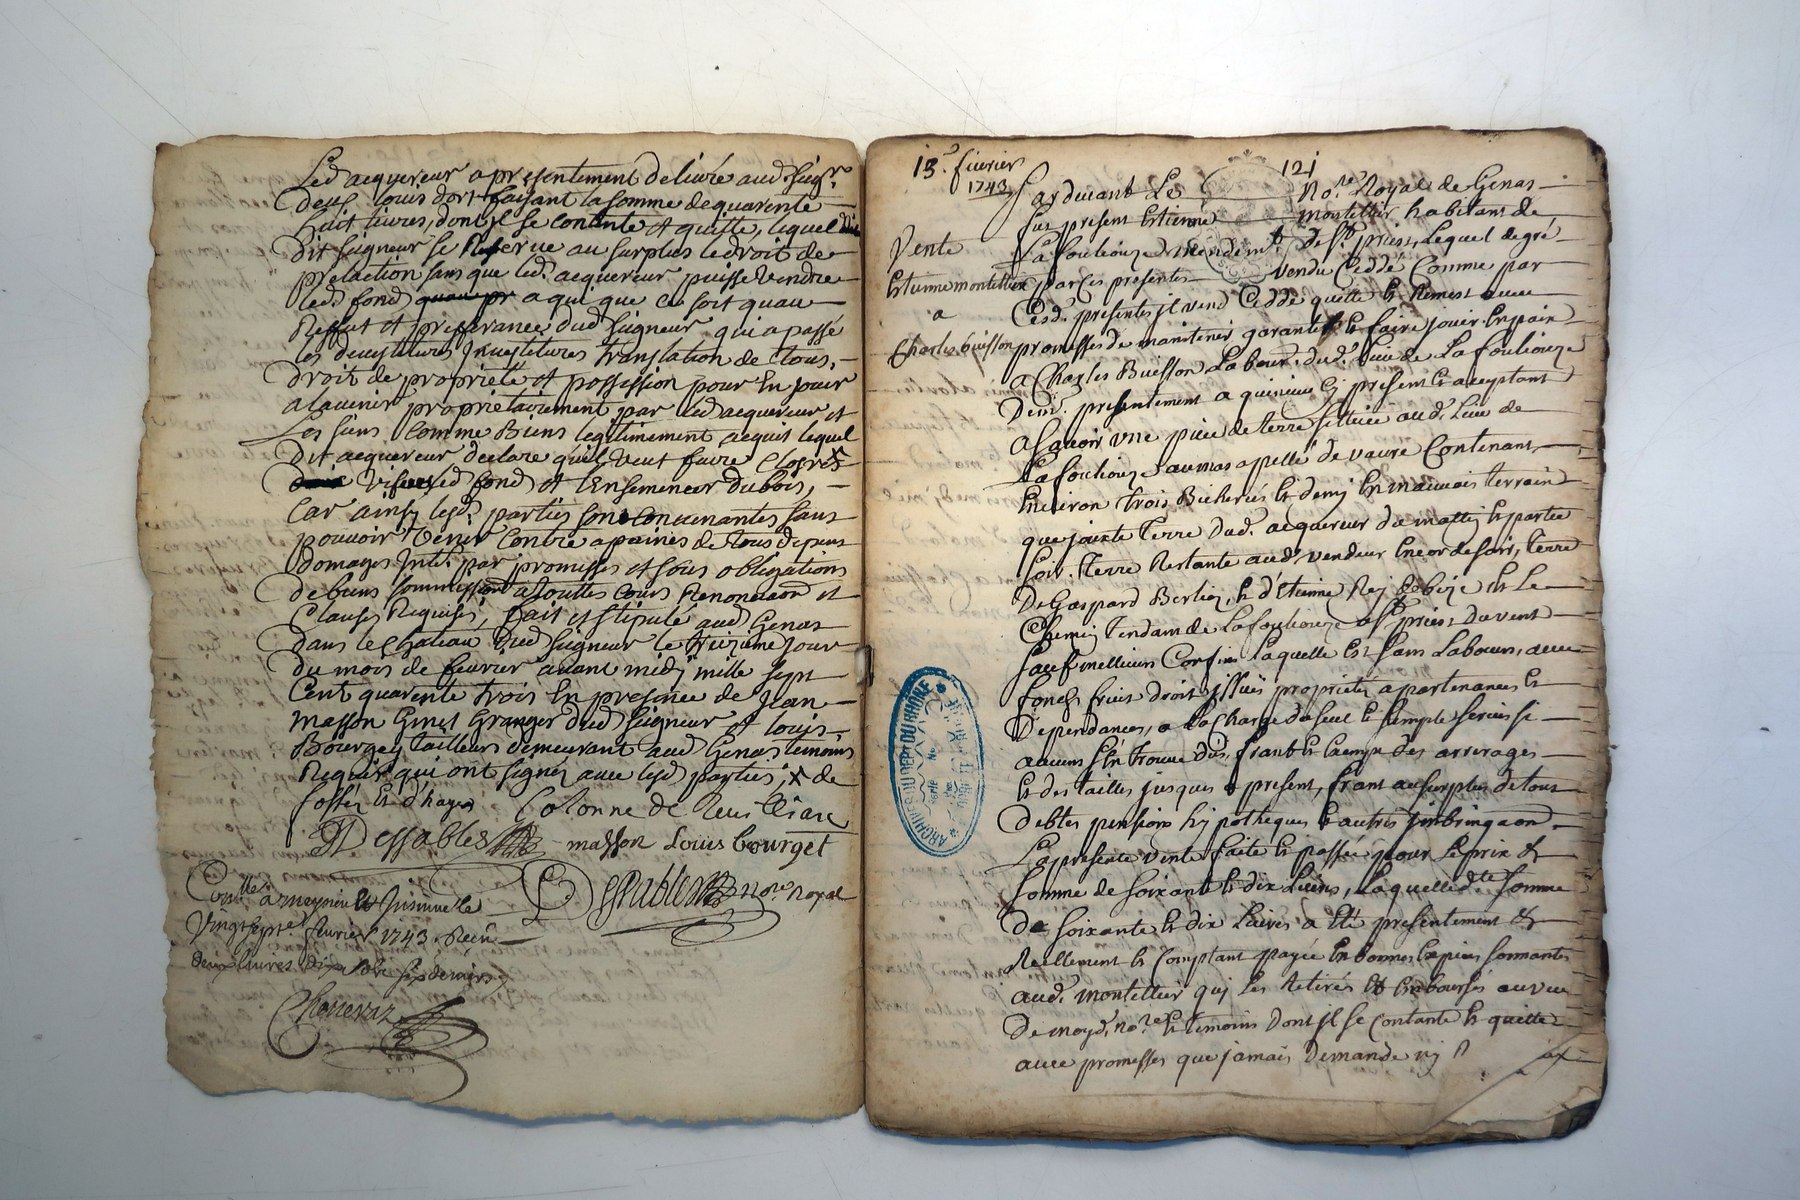 Led acquereur a presentement delivré aud. Seigr.
deux louis d'or faisant la somme de quarente
huit livres, dont il se contante et quitte, lequel
dit seigneur se Reserve au surplus le droit de
prelaction sans que led. acquereur puisse vendre
led fond a qui que ce soit quau
Reffut et preferance dud seigneur qui a passé
les devestitures Investitures translation de tous
droit de proprieté et possession pour En jouir
a lavenir proprietairement par led acquereur et
Les siens Comme Biens legitimement acquis lequel
dit acquereur declare quil veut faire
led fond et lEnsemencer du bois,
Car ainsy lesd. parties sont convenantes sans
pouvoir venir contre a paines de tous depens
domages Intts. par promesses et sous obligations
de biens soummissions a touttes Cours Renonciaon et
Clauses Requises, fait et stipulé aud Genas
dans le chateau dud seigneur le treizieme jour
du mois de fevrier avant midy mille sept
Cent quarente trois En presance de Jean
masson Granger dud seigneur et louis
Bourgey tailleur demeurant aud Genas temoins
Requis qui ont signéz avec lesd parties; X de
fosséz Et d'hayes Colonne de
Dessables masson Louis bourget
Conllé. a meyrieu Et Insinué le Dessables nore. Royal
Vingt sept fevrier 1743. Recu
deux livres dix sols six deniers
13e. fevrier 121
1743 Pardevant Le Nore. Royal de Genas
fut present Estienne montellier habitant de
Vente La fouliouze de St. priest, Lequel de gré
Estienne montellier par ces presentes vendu Cedde Comme par
a Cesd. presentes il vend Cedde quitte Et Remest avec
Charles buisson promesses de maintenir garantir Et faire jouir En paix
a Charles Buisson Labour. dud. lieu de La fouliouze
Demt. presentement a Et present Et acceptant
A scavoir une piece de terre sittuée aud. Lieu de
La fouliouze au mas apellé de vavre Contenant
Environ trois Bicherés Et demy En mauvais terrain
que jouxte Terre Dud. acquereur du mattin Et partie
soir. Terre Restante aud. vendeur Encor de soir, terre
De Gaspard Berlioz, Et d'Etienne Rey de bize Et Le
Chemin Tendam de La fouliouze a St priest Du vent
sauf meilleurs Confins Laquelle Est sans Labours, avec
fonds fruis droits issues proprietez apartenances Et
Dependances, a La Charge du seul Et simple servis si
aucuns s'en trouve dus, franc Et Exempt des arrerages
Et des tailles jusques a present, franc au surplus de tous
debtes pensions hypotheques Et autres
La presente vente faite Et passée pour Le prix Et
somme de soixante Et dix Livres, Laquelle dte somme
De soixante Et dix Livres a Eté presentement Et
Reellement Et Comptant payée En bonnes Especes sonnantes
aud. montellier qui Les Retirés Et Emboursés au vu
De moyd. nore. Et temoins Dont il se Contante Et quitte
avec promesses que jamais Demande ny
ARCHIVES DU DEPT DU RHONE